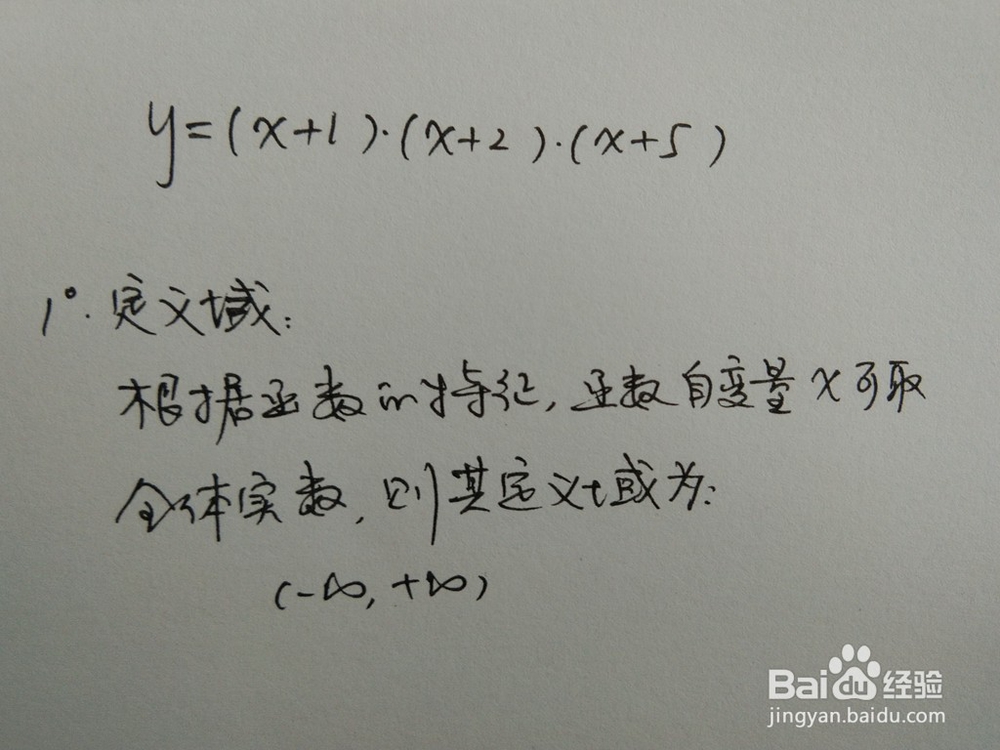 y=(x+1)·(x+2)·(x+5)
1°.定义域:
根据函数的特征,函数自变量x可取
全体实数,则其定义域为:
(-∞,+∞)
Baidu经验
jingyan.baidu.com